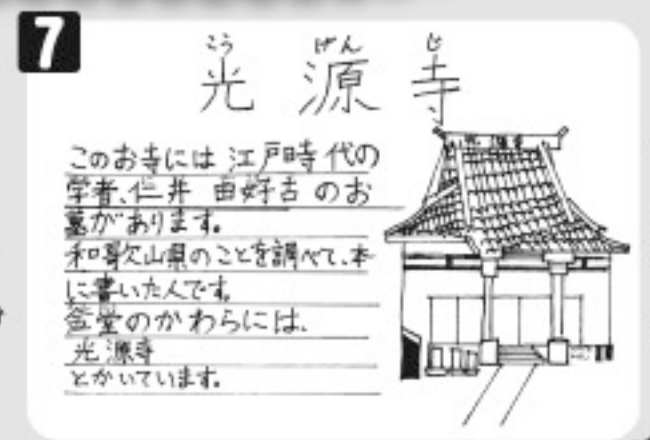 7
こう げん じ
光源寺
このお寺には江戸時代の
学者、仁井 田好古のお
墓があります。
和歌山県のことを調べて、本
に書いた人です。
堂のかわらには、
光源寺
とかいています。